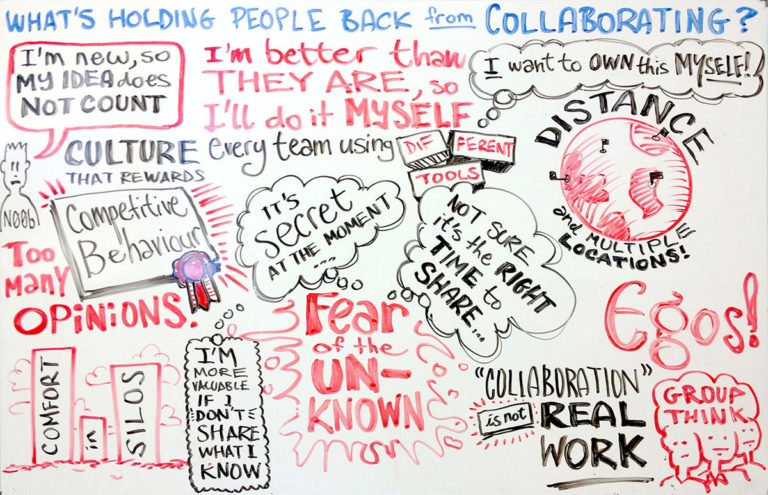 WHAT'S HOLDING PEOPLE BACK from COLLABORATING?
I'm new, so
MY IDEA does
NOT COUNT
NOOB!
I'm better than
THEY ARE, so
I'll do it MYSELF
I want to OWN this MYSELF!
CULTURE
THAT REWARDS
Competitive
Behaviour
every team using
DIF FERENT
TOOLS
DISTANCE
and MULTIPLE
LOCATIONS!
IT'S
Secret
AT THE MOMENT
....
NOT SURE
it's the RIGHT
TIME to
SHARE...
Too
Many
OPINIONS.
Fear
of the
UN-
KNOWN
Egos!
COMFORT
in
SILOS
I'M
MORE
VALUABLE
IF I
DON'T
SHARE
WHAT I
KNOW
"COLLABORATION"
is not REAL
WORK
GROUP
THINK